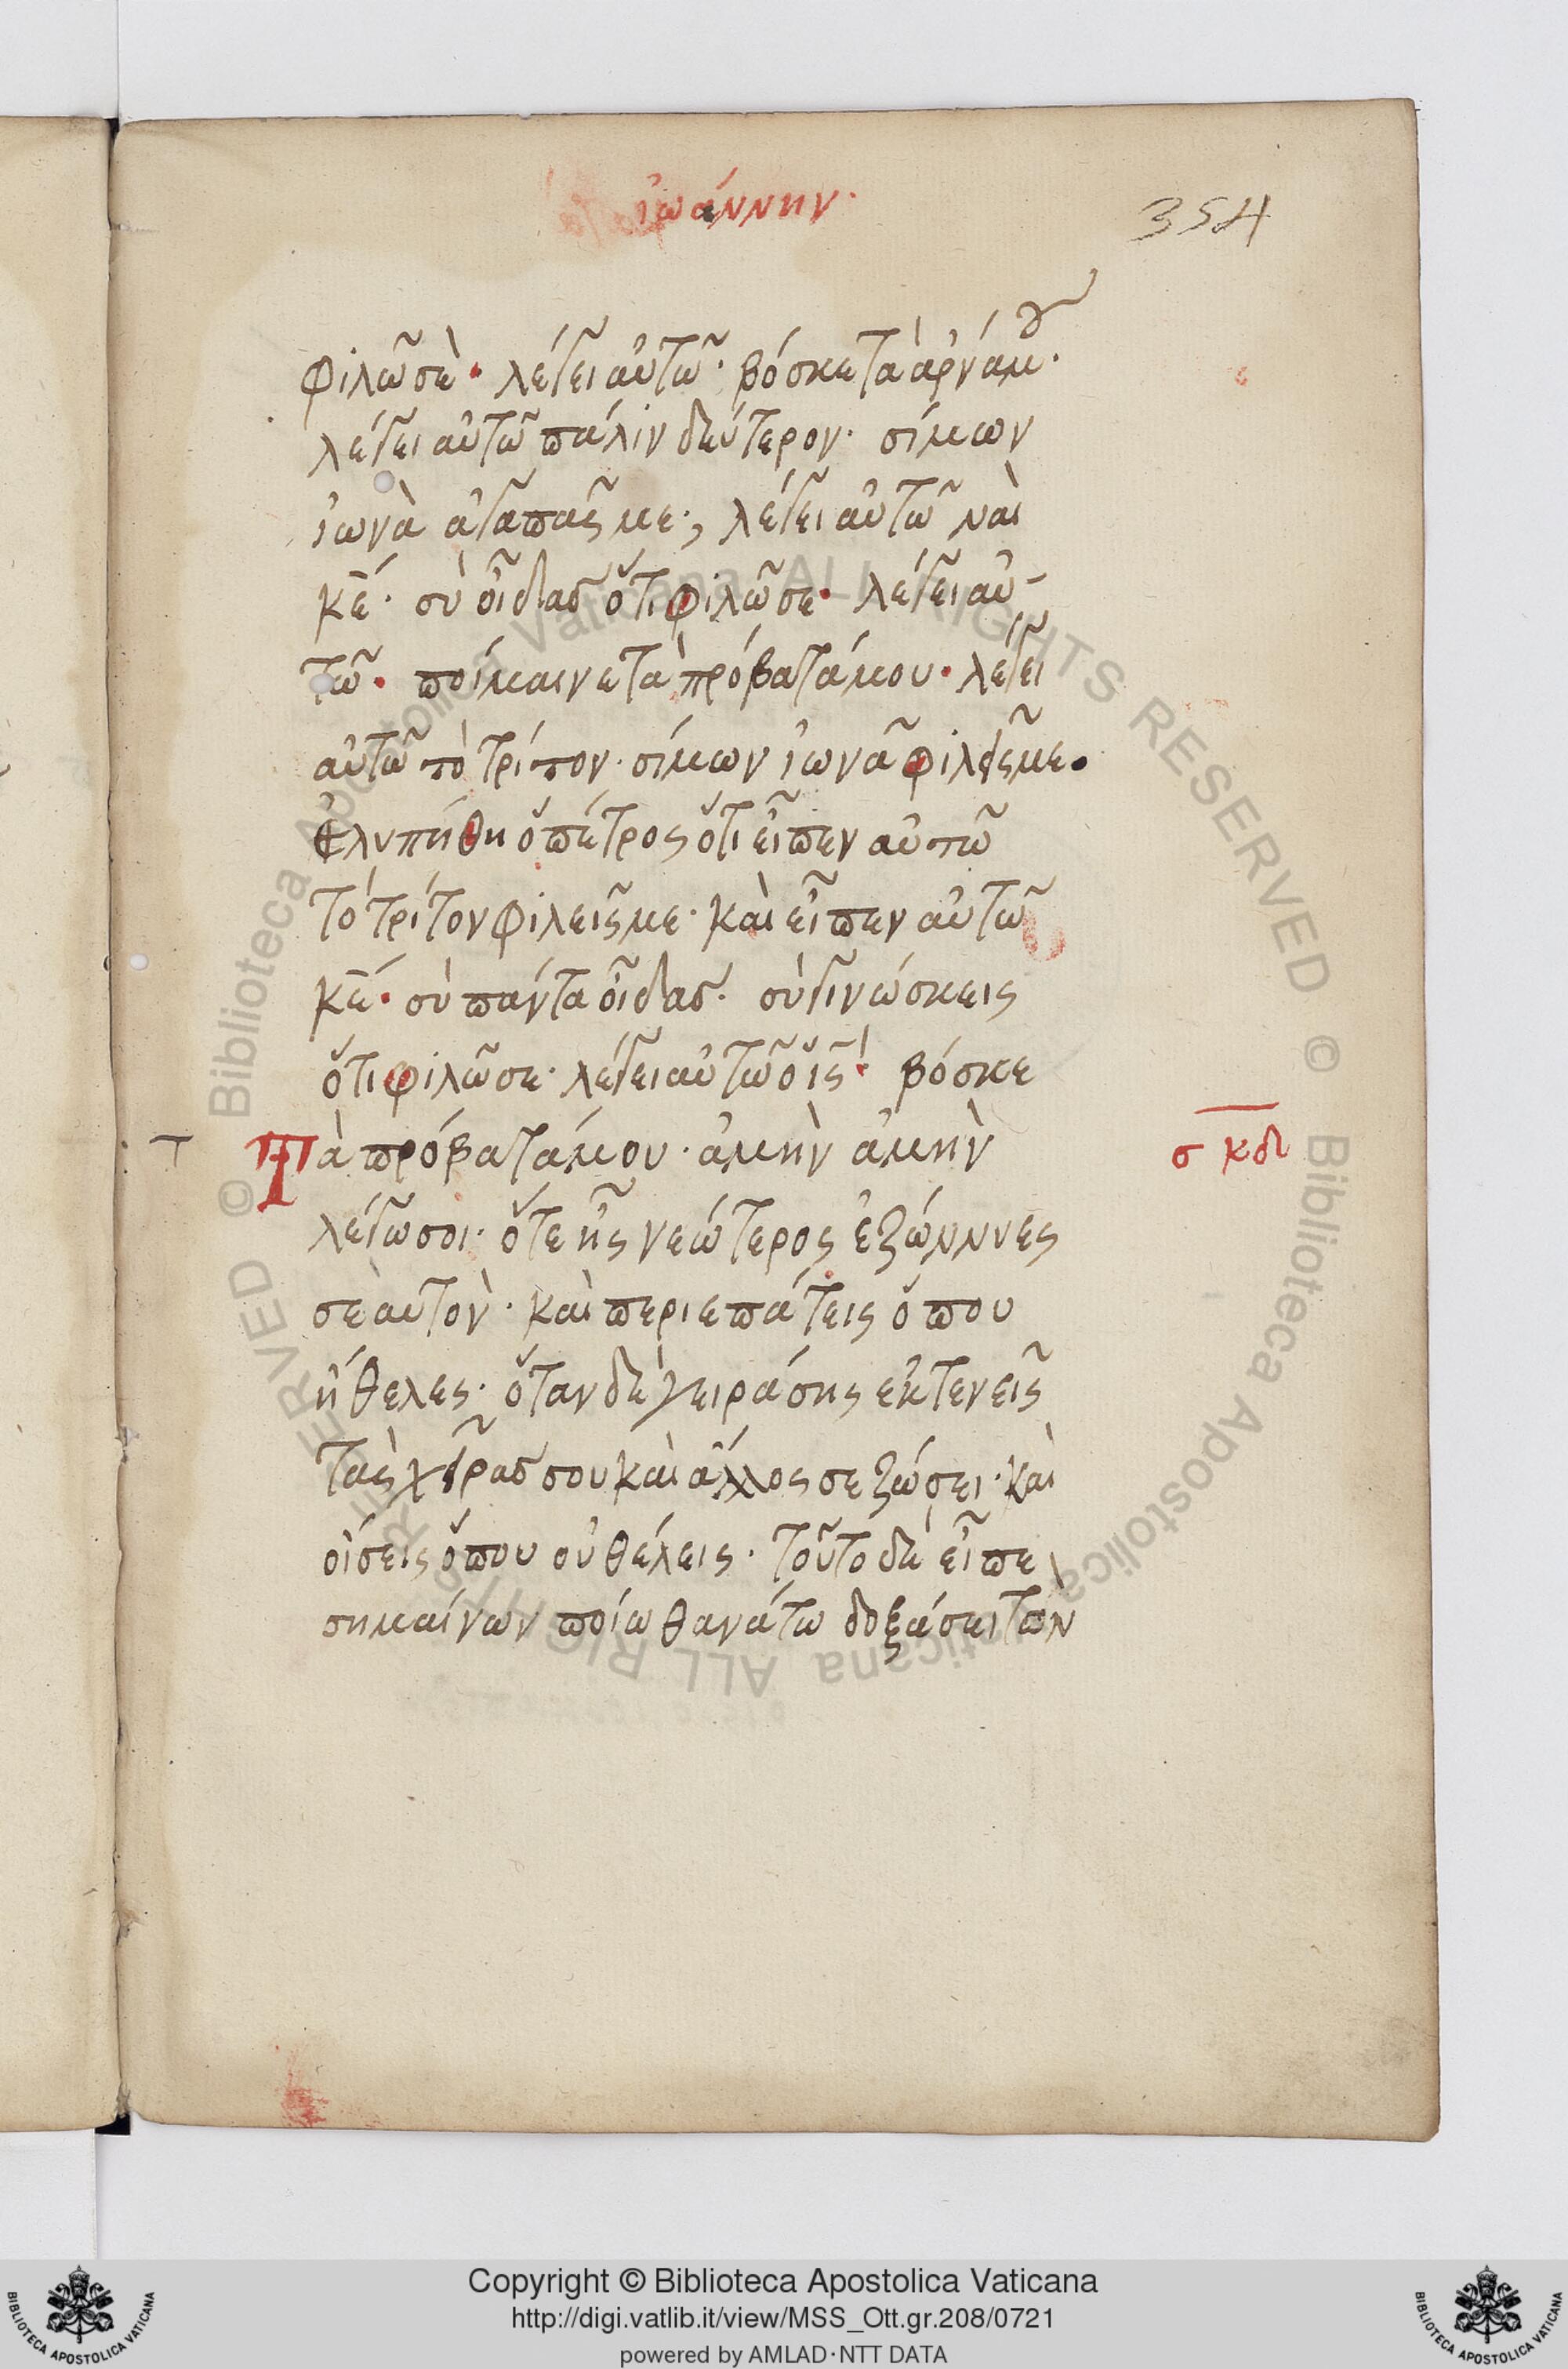 ἰωάννην·
354
φιλῶ σὲ· λέγει αὐτῶ· βόσκε τὰ ἀρνία μου·
λέγει αὐτῶ πάλιν δεύτερον· σίμων
ἰωνὰ ἀγαπᾶς με·, λέγει αὐτῶ ναὶ
κ̅ε̅· σὺ οἶδας ὅτι φιλῶ σε· λέγει αὐ-
τῶ· ποίμαινε τὰ πρόβατά μου· λέγει
αὐτῶ τὸ τρίτον· σίμων ἰωνᾶ φιλεῖς με·
ἐλυπήθη ὁ πέτρος ὅτι εἶπεν αὐτῶ
τὸ τρίτον φιλεῖς με· καὶ εἶπεν αὐτῶ
κ̅ε̅· σὺ πάντα οἶδας· σὺ γινώσκεις
ὅτι φιλῶ σε· λέγει αὐτῶ ὁ ι̅ς̅· βόσκε
Τὰ πρόβατά μου· ἀμὴν ἀμὴν
σκδ
λέγω σοι· ὅτε ἦς νεώτερος ἐζώννυες
σεαυτὸν· καὶ περιεπάτεις ὅπου
ἤθελες· ὅταν δὲ γειράσης ἐκτενεῖς
τὰς χεῖρας σου καὶ ἄλλος σε ζώσει· καὶ
οἴσεις ὅπου οὐ θέλεις· τοῦτο δὲ εἶπε
σημαίνων ποίω θανάτω δοξάσει τὸν
Copyright © Biblioteca Apostolica Vaticana
http://digi.vatlib.it/view/MSS_Ott.gr.208/0721
powered by AMLAD·NTT DATA